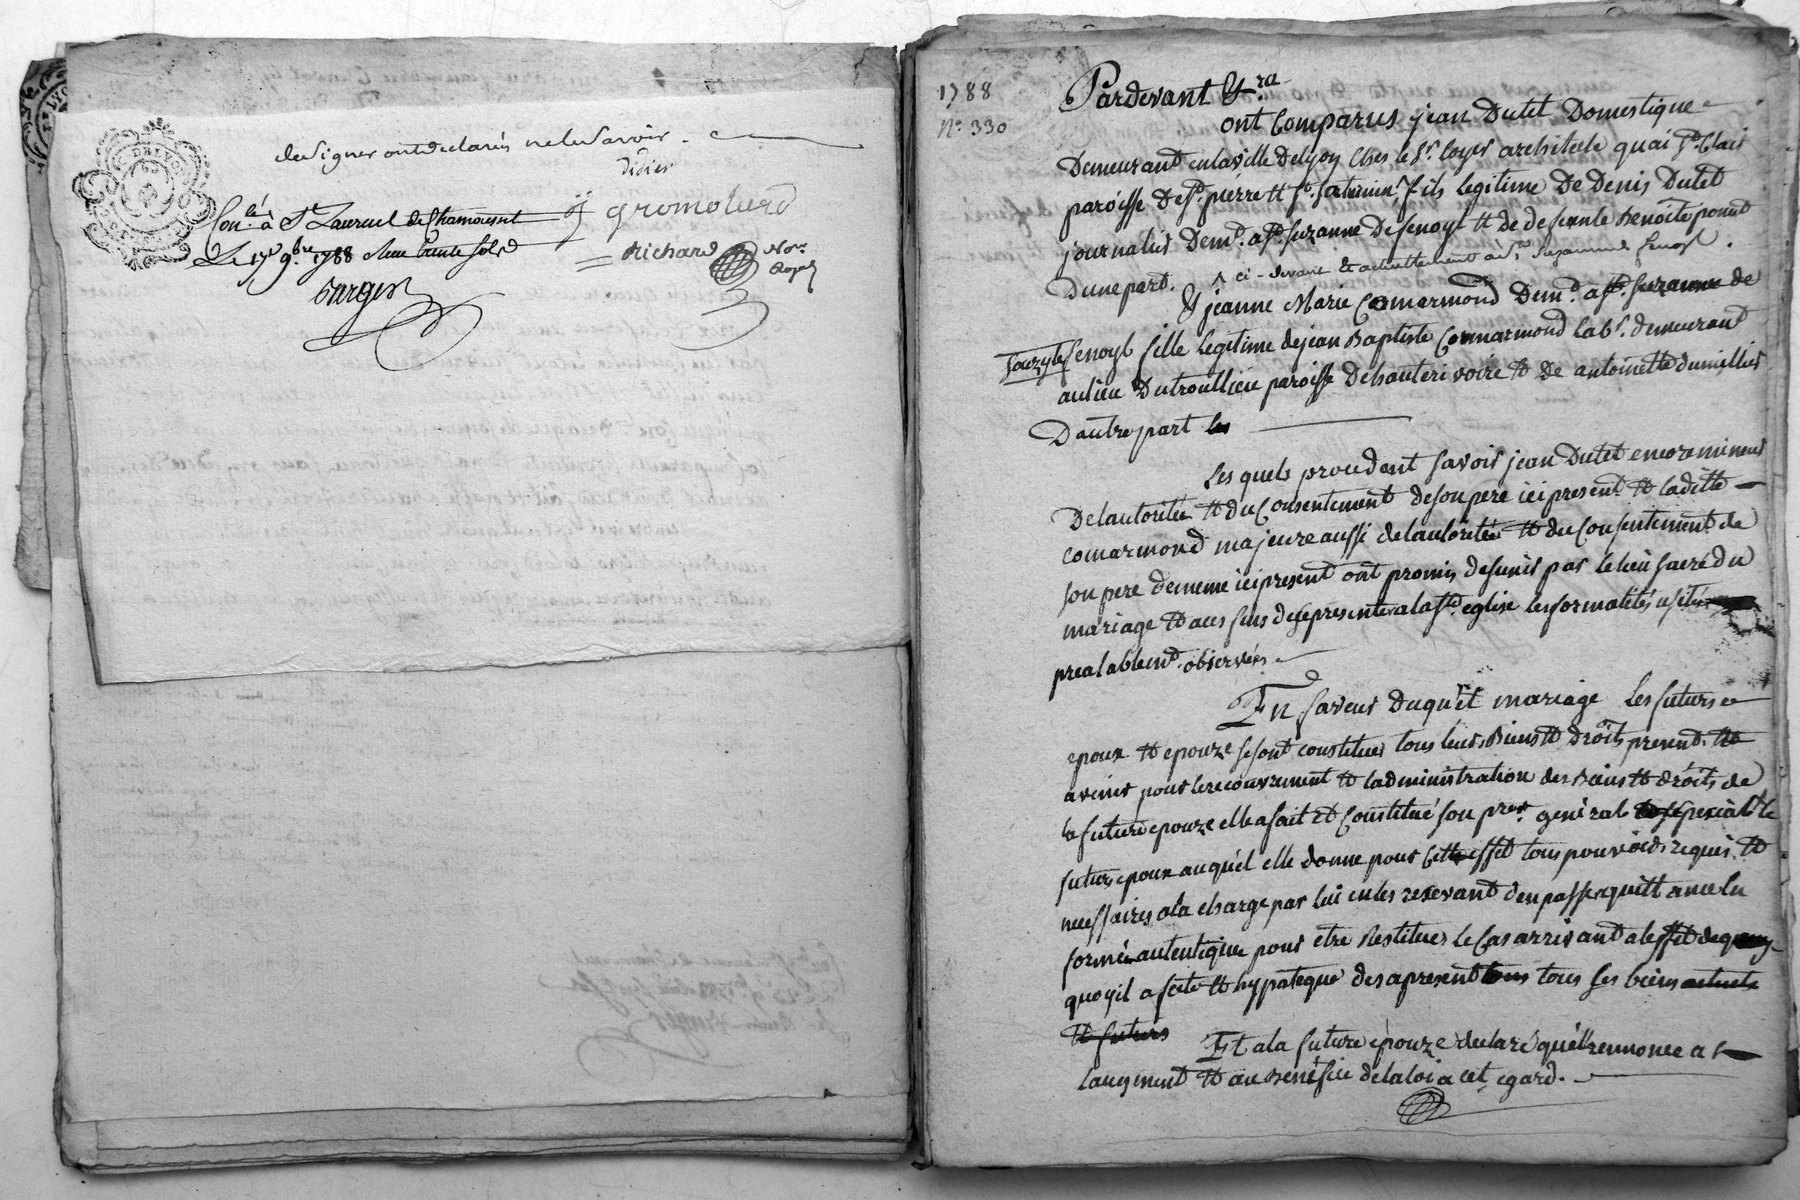 de signer ont declarés ne le savoir.
didier
Con.lé à St Laurent de Chamousset
j gromolard
Le 17e 9bre 1788 Reçu trente sols
Richard No.re
Royal
1788
N.o 330
Pardevant &.ra
ont Comparus jean Dutel Domestique
Demeurant en la ville De Lyon Ches le Sr. Loyer architecte quai St. Clair
paroisse De St. pierre et St. Saturnin, fils legitime De Denis Dutel
journalier Dem.t a Ste. Suzanne De fenoyl et de defeunte Benoite
D'une part.
ci-devant & actuellement à Ste Suzanne fenoyl.
& jeanne Marie Comarmond Dem.t a Ste. Suzanne de
Souzy le fenoyl fille legitime de jean Baptiste Comarmond lab.r demeurant
au lieu Dutroullieu paroisse De hauterivoire et De antoinette dumillier
D'autre part les
Les quels procedent savoir jean Dutel encore mineur
De l'autorité et du Consentement de son pere ici present et la ditte
comarmond majeure aussi de l'autorité et du Consentement de
son pere de meme ici present ont promis de s'unir par le lien sacré du
mariage et aux fins de se presenter a la Ste. eglise les formalités usitées
prealablem.t observées.
En faveur Duquel mariage les futurs
epoux et epouze se sont constitués tous leurs Biens et Droits presents et
avenir pour le recouvrement et l'administration des Biens et droits de
la future epouze elle a fait et Constitué son pro.r general et special le
futur epoux auquel elle donne pour cet effet tous pouvoirs requis et
necessaires a la charge par lui en les recevant d'en passer quittance en
forme autentique pour etre Restitués le Cas arrivant a l'effet de
quoy il a fecté et hypotequé des a present tous ses biens actuels
et futurs
Et a la future epouze declaré qu'elle renonce a
l'augment et au Benéfice de la loi a cet egard.